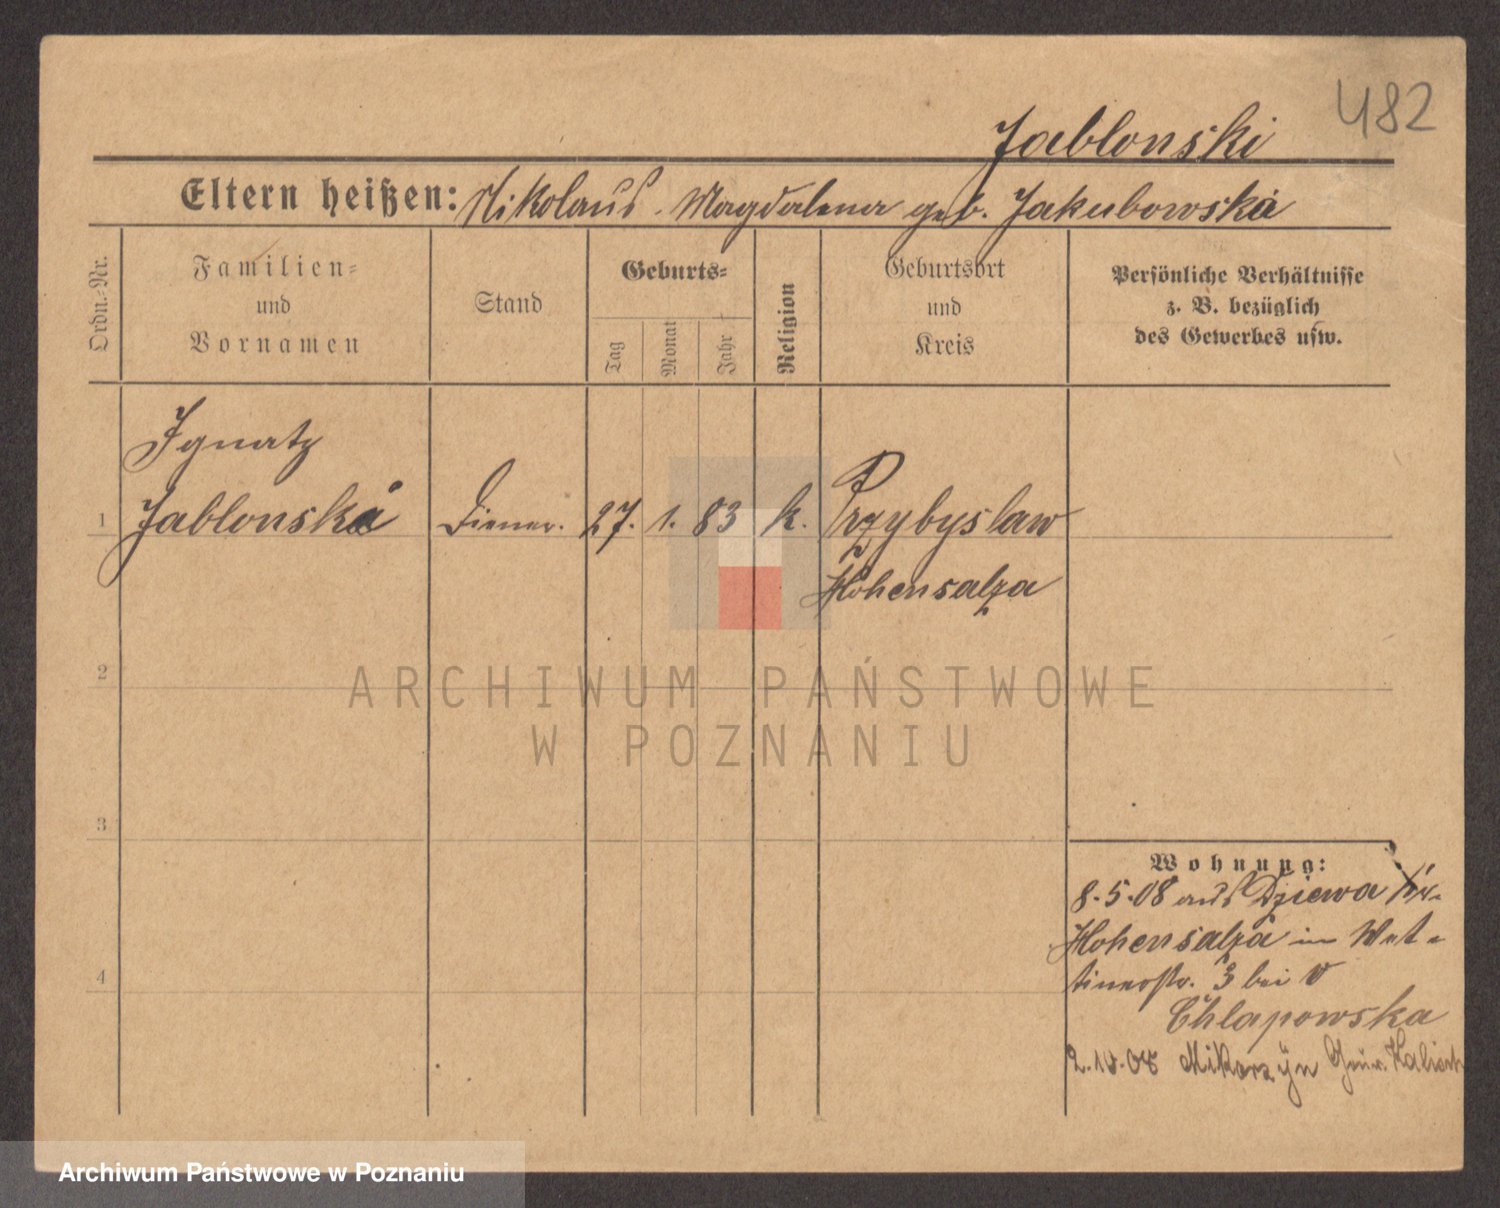 482
Jablonski
Eltern heißen: Nikolaus. Magdalena geb. Jakubowska
Ordn.-Nr.
Familien-
und
Vornamen
Stand
Geburts-
Tag
Monat
Jahr
Religion
Geburtsort
und
Kreis
Persönliche Verhältnisse
z. B. bezüglich
des Gewerbes usw.
Ignatz
1 Jablonski Diener. 27. 1. 83 k. Przybyslaw
Hohensalza
2
ARCHIWUM PAŃSTWOWE
W POZNANIU
3
4
Wohnung:
8.5.08 aus Dziewa Kr.
Hohensalza in Wet-
tinerstr. 3 bei v
Chlapowska
2.10.08 Mikorzyn Gouv. Kalisch
Archiwum Państwowe w Poznaniu